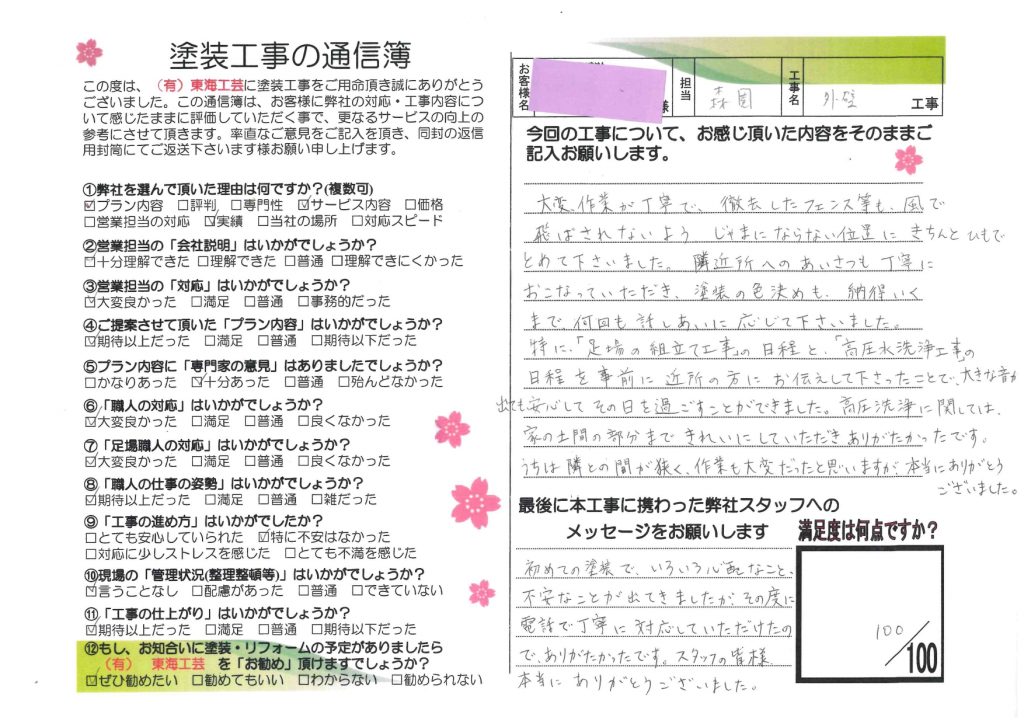 塗装工事の通信簿
この度は、（有）東海工芸に塗装工事をご用命頂き誠にありがとう
ございました。この通信簿は、お客様に弊社の対応・工事内容につ
いて感じたままに評価していただく事で、更なるサービスの向上の
参考にさせて頂きます。率直なご意見をご記入を頂き、同封の返信
用封筒にてご返送下さいます様お願い申し上げます。
①弊社を選んで頂いた理由は何ですか？(複数可)
☑プラン内容 □評判 □専門性 ☑サービス内容 □価格
□営業担当の対応 ☑実績 □当社の場所 □対応スピード
②営業担当の「会社説明」はいかがでしょうか？
☑十分理解できた □理解できた □普通 □理解できにくかった
③営業担当の「対応」はいかがでしょうか？
☑大変良かった □満足 □普通 □事務的だった
④ご提案させて頂いた「プラン内容」はいかがでしょうか？
☑期待以上だった □満足 □普通 □期待以下だった
⑤プラン内容に「専門家の意見」はありましたでしょうか？
□かなりあった ☑十分あった □普通 □殆んどなかった
⑥「職人の対応」はいかがでしょうか？
☑大変良かった □満足 □普通 □良くなかった
⑦「足場職人の対応」はいかがでしょうか？
☑大変良かった □満足 □普通 □良くなかった
⑧「職人の仕事の姿勢」はいかがでしょうか？
☑期待以上だった □満足 □普通 □雑だった
⑨「工事の進め方」はいかがでしたか？
□とても安心していられた ☑特に不安はなかった
□対応に少しストレスを感じた □とても不満を感じた
⑩現場の「管理状況(整理整頓等)」はいかがでしょうか？
☑言うことなし □配慮があった □普通 □できていない
⑪「工事の仕上がり」はいかがでしょうか？
☑期待以上だった □満足 □普通 □期待以下だった
⑫もし、お知合いに塗装・リフォームの予定がありましたら
（有） 東海工芸 を「お勧め」頂けますでしょうか？
☑ぜひ勧めたい □勧めてもいい □わからない □勧められない
お客様名 様 担当 森園 工事名 外壁 工事
今回の工事について、お感じ頂いた内容をそのままご
記入お願いします。
大変、作業が丁寧で、撤去したフェンス等も、風で
飛ばされないよう じゃまにならない位置に きちんと ひもで
とめて下さいました。隣近所へのあいさつも丁寧に
おこなっていただき、塗装の色決めも、納得いく
まで、何回も話しあいに応じて下さいました。
特に、「足場の組立て工事」の日程と、「高圧水洗浄工事」の
日程を事前に近所の方に お伝えして下さったことで、大きな音が
出ても安心して その日を過ごすことができました。高圧洗浄に関しては、
家の土間の部分まで きれいにしていただき ありがたかったです。
うちは隣との間が狭く、作業も大変だったと思いますが、本当にありがとう
ございました。
最後に本工事に携わった弊社スタッフへの
メッセージをお願いします
初めての塗装で、いろいろ心配なこと、
不安なことが出てきましたが、その度に
電話で丁寧に対応していただけたの
で、ありがたかったです。スタッフの皆様
本当に ありがとうございました。
満足度は何点ですか？
100/100